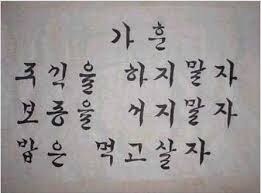 가 훈
주식을 하지말자
보증을 서지말자
밥은 먹고살자